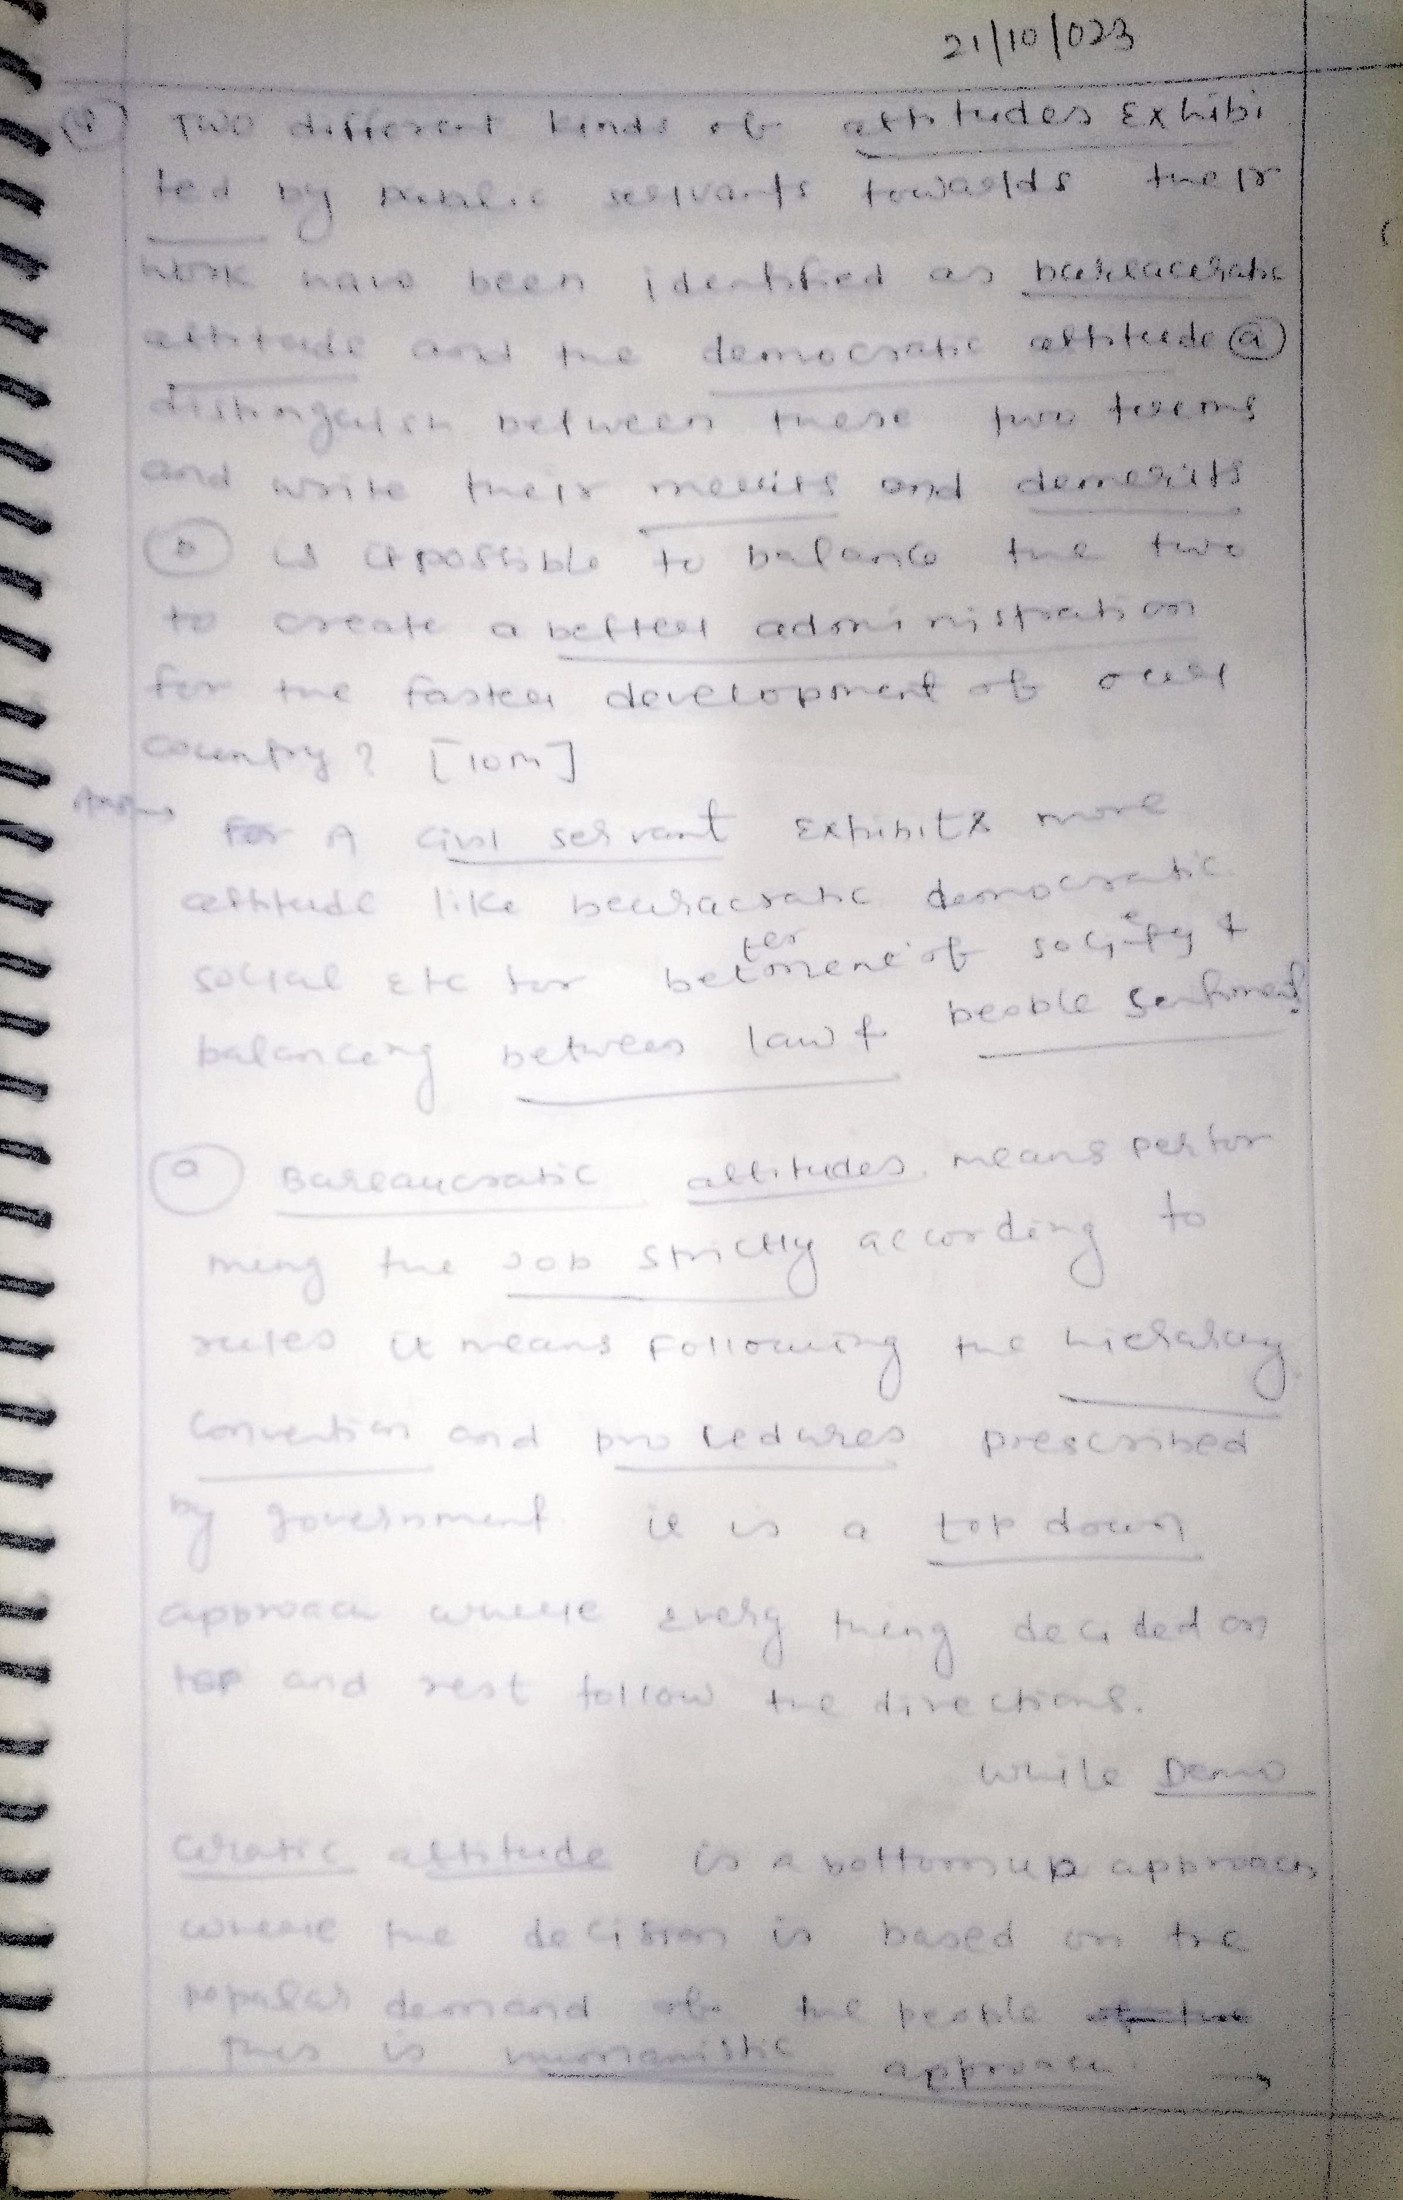 21/10/023
Two different kinds of attitudes Exhibi
ted by public servants towards their
work have been identified as bureaucratic
attitude and the democratic attitude (a)
distinguish between these two terms
and write their merits and demerits
(b) is it possible to balance the two
to create a better administration
for the faster development of our
country? [10m]
Ans For A Civil servant Exhibits more
attitude like beuracratic democratic
social Etc for betterment of society &
balancing between law & people sentiments
Bureaucratic attitudes means perfor
ming the Job strictly according to
rules it means Following the hierarchy
convention and procedures prescribed
by government it is a top down
approach where every thing decided on
top and rest follow the directions.
While Demo
cratic attitude is a bottom up approach
where the decision is based on the
popular demand of the people
This is humanistic approach